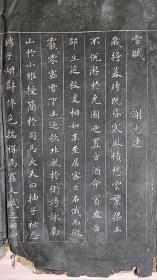 雪賦 謝惠連
歲將暮時既昏寒風積愁雲繁梁王
不悅游於兔園迺置旨酒命賓友召
鄒生延枚叟相如末至居客之右俄而微
霰零密雪下王迺歌北風於衛詩詠南
山於小雅授簡於司馬大夫曰抽子秘思
騁子妍辭侔色揣稱為寡人賦之相如